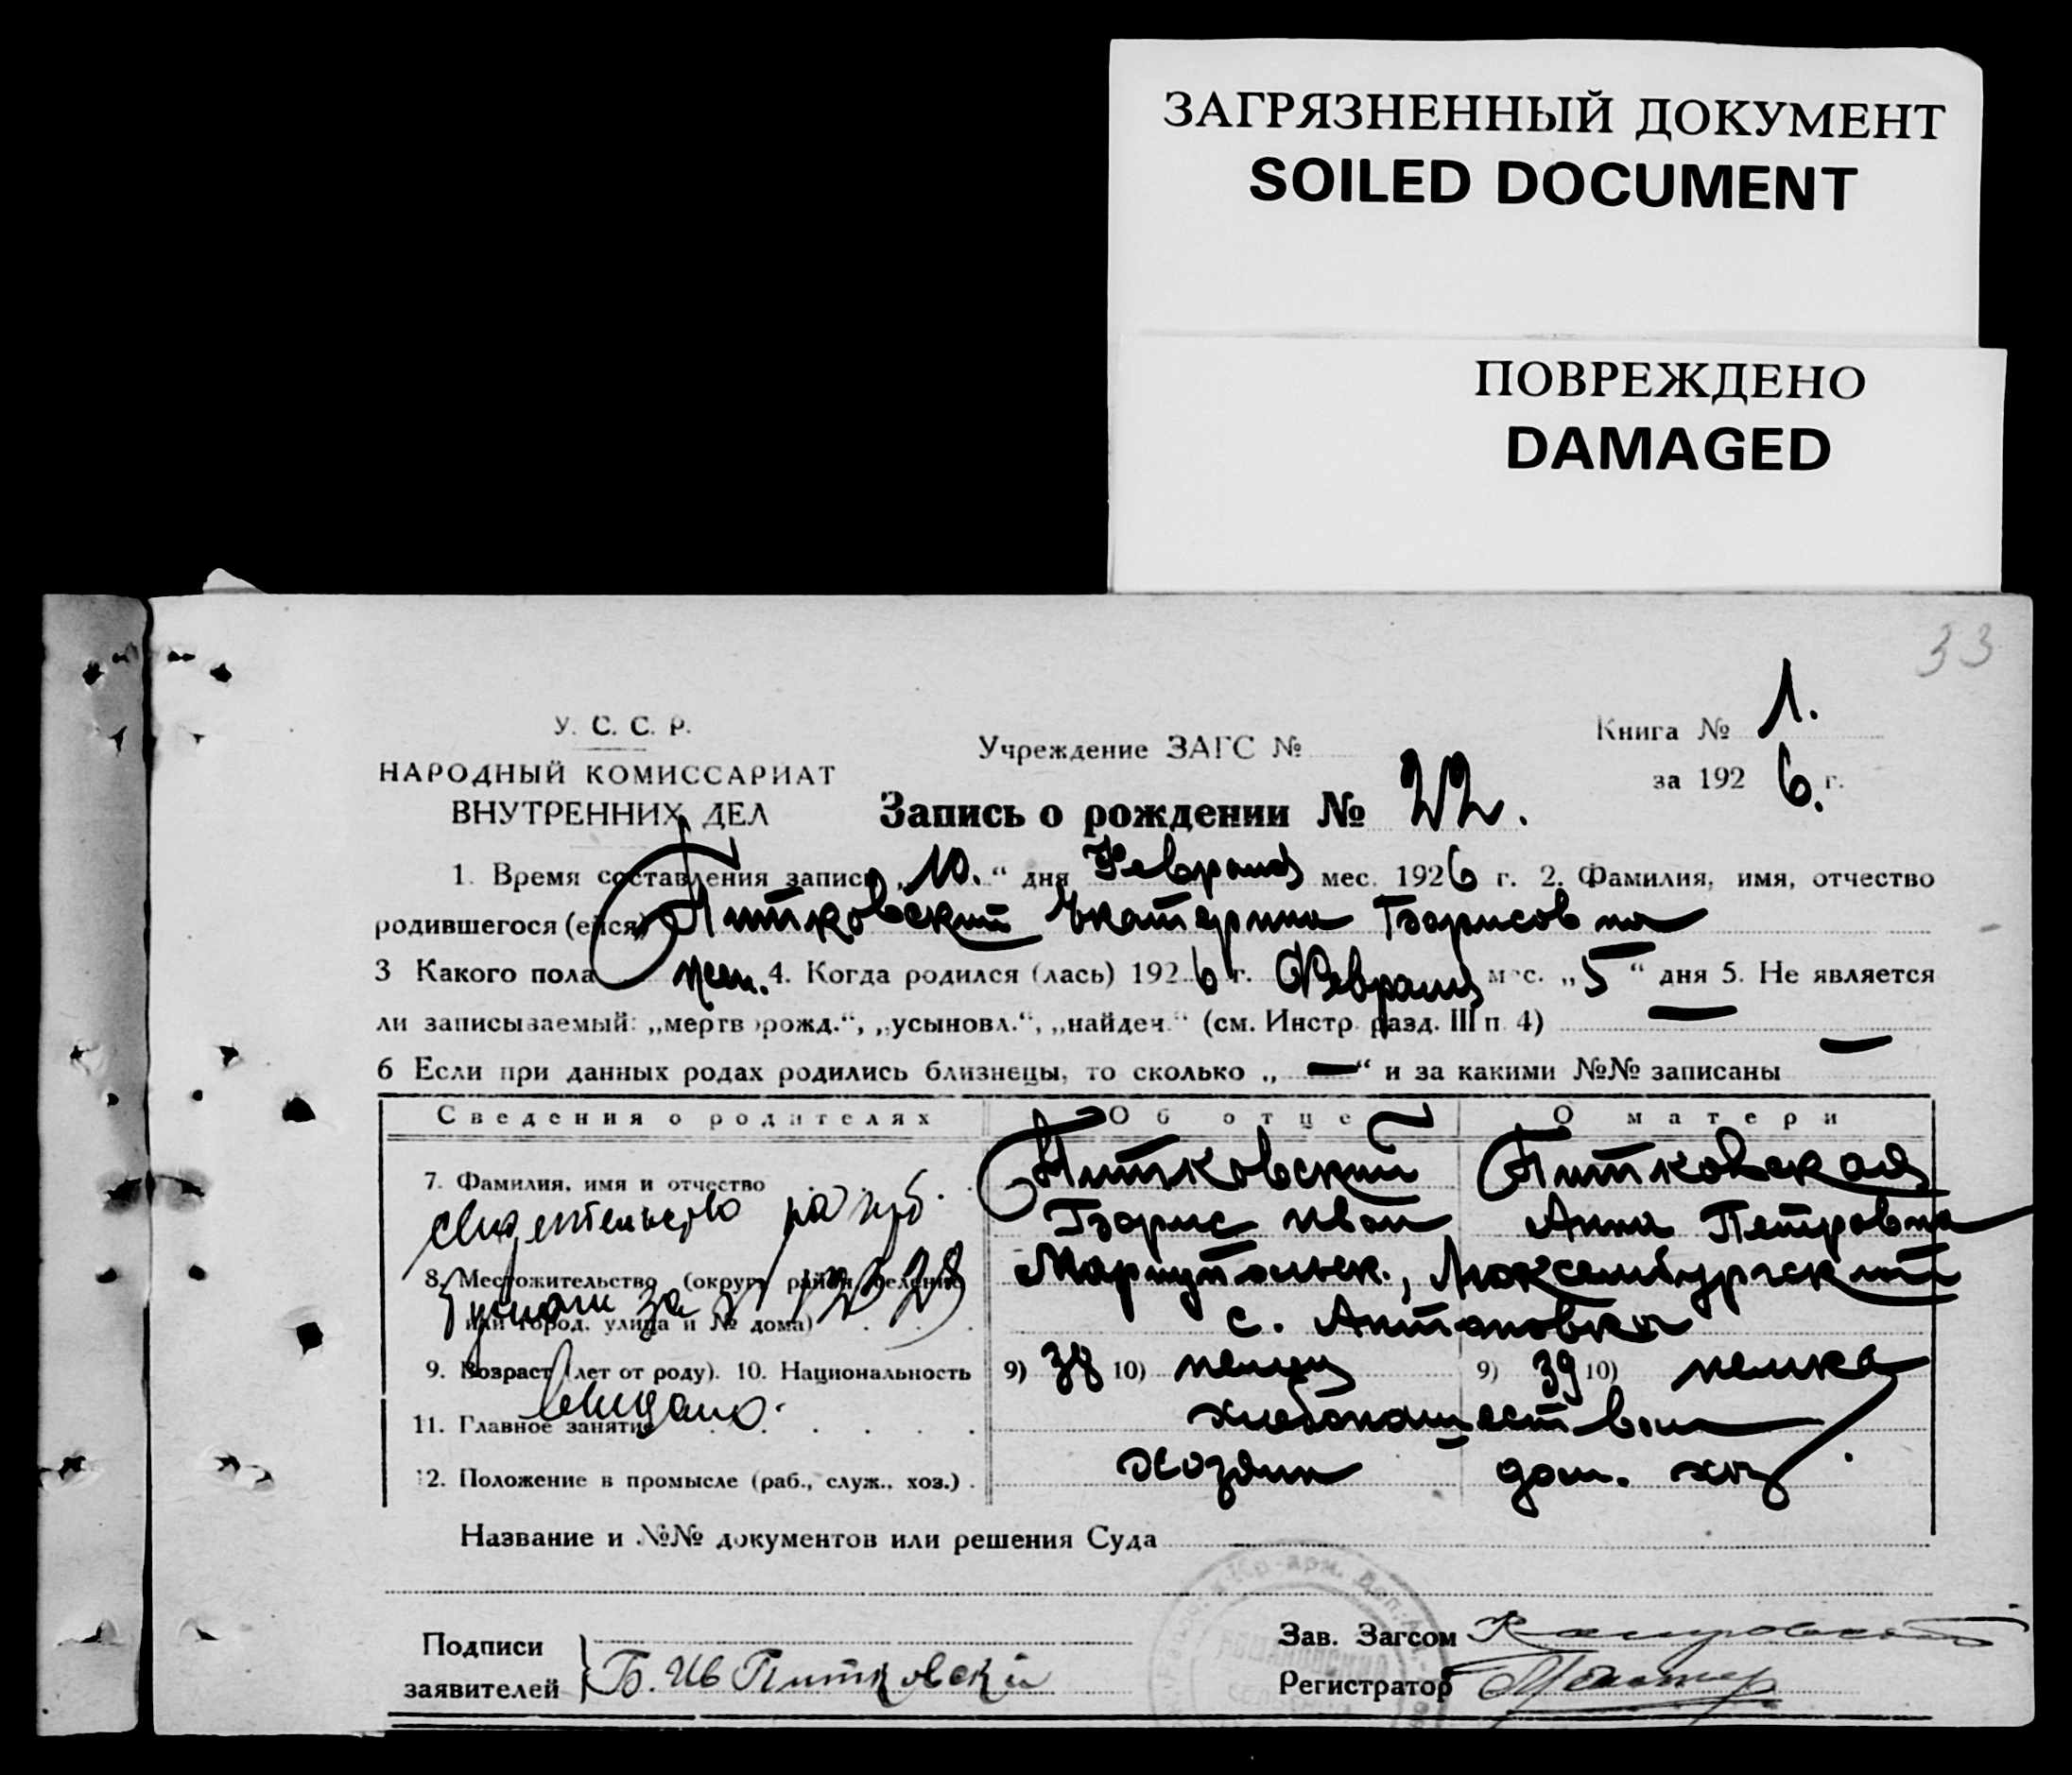 ЗАГРЯЗНЕННЫЙ ДОКУМЕНТ
SOILED DOCUMENT
ПОВРЕЖДЕНО
DAMAGED
33
У. С. С. Р.
НАРОДНЫЙ КОМИССАРИАТ
ВНУТРЕННИХ ДЕЛ
Учреждение ЗАГС №
Книга № 1.
за 1926 г.
Запись о рождении № 22.
1. Время составления записи „10.“ дня Февраля мес. 1926 г. 2. Фамилия, имя, отчество
родившегося (ейся) Питковский Екатерина Борисовна
3 Какого пола жен. 4. Когда родился (лась) 1926 г. Февраля мес. „5“ дня 5. Не является
ли записываемый: „мертворожд.“, „усыновл.“, „найден.“ (см. Инстр. разд. III п. 4) —
6 Если при данных родах родились близнецы, то сколько „—“ и за какими №№ записаны —
Сведения о родителях Об отце О матери
7. Фамилия, имя и отчество Питковский Питковская
свидетельство Борис Иван Анна Петровна
8. Местожительство (округ, район, селение Мариупольск., Люксембургский
или город, улица и № дома) с. Антоновка
за №
9. Возраст (лет от роду). 10. Национальность 9) 38 10) немец 9) 39 10) немка
выдано.
11. Главное занятие хлебопашество
12. Положение в промысле (раб., служ., хоз.) хозяин дом. хоз
Название и №№ документов или решения Суда
Подписи
заявителей Б. Ив Питковскй
Зав. Загсом
Регистратор